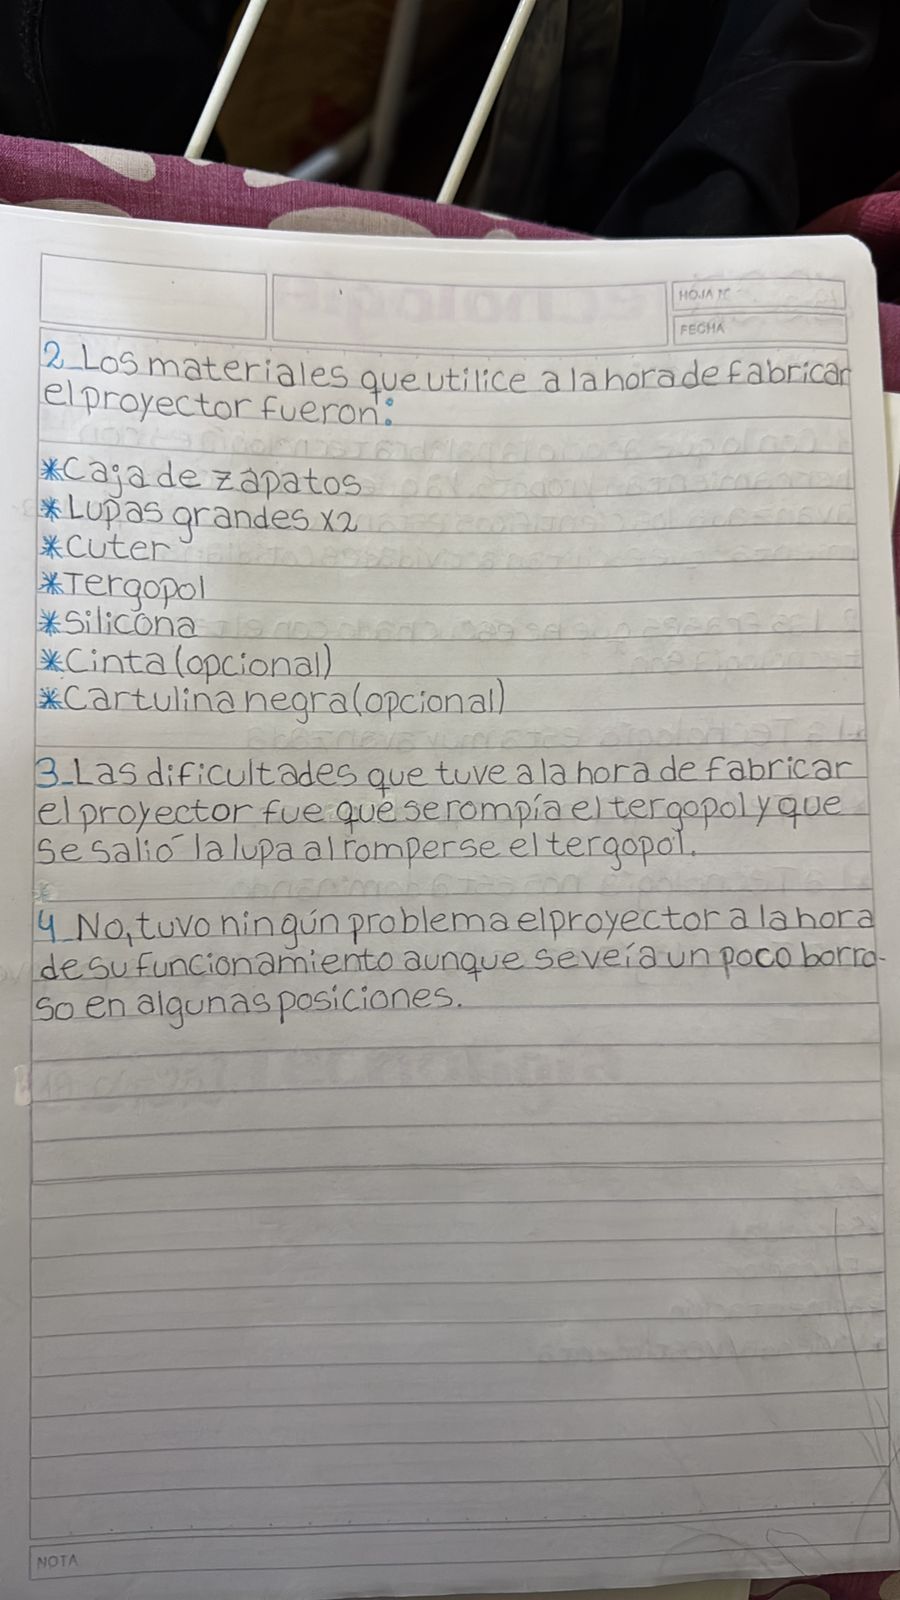 HOJA N°
FECHA
2_Los materiales que utilice a la hora de fabricar
el proyector fueron:
*Caja de zapatos
*Lupas grandes x2
*Cuter
*Tergopol
*Silicona
*Cinta (opcional)
*Cartulina negra (opcional)
3_Las dificultades que tuve a la hora de fabricar
el proyector fue que se rompía el tergopol y que
se salió la lupa al romperse el tergopol.
4_No, tuvo ningún problema el proyector a la hora
de su funcionamiento aunque se veía un poco borro-
so en algunas posiciones.
NOTA